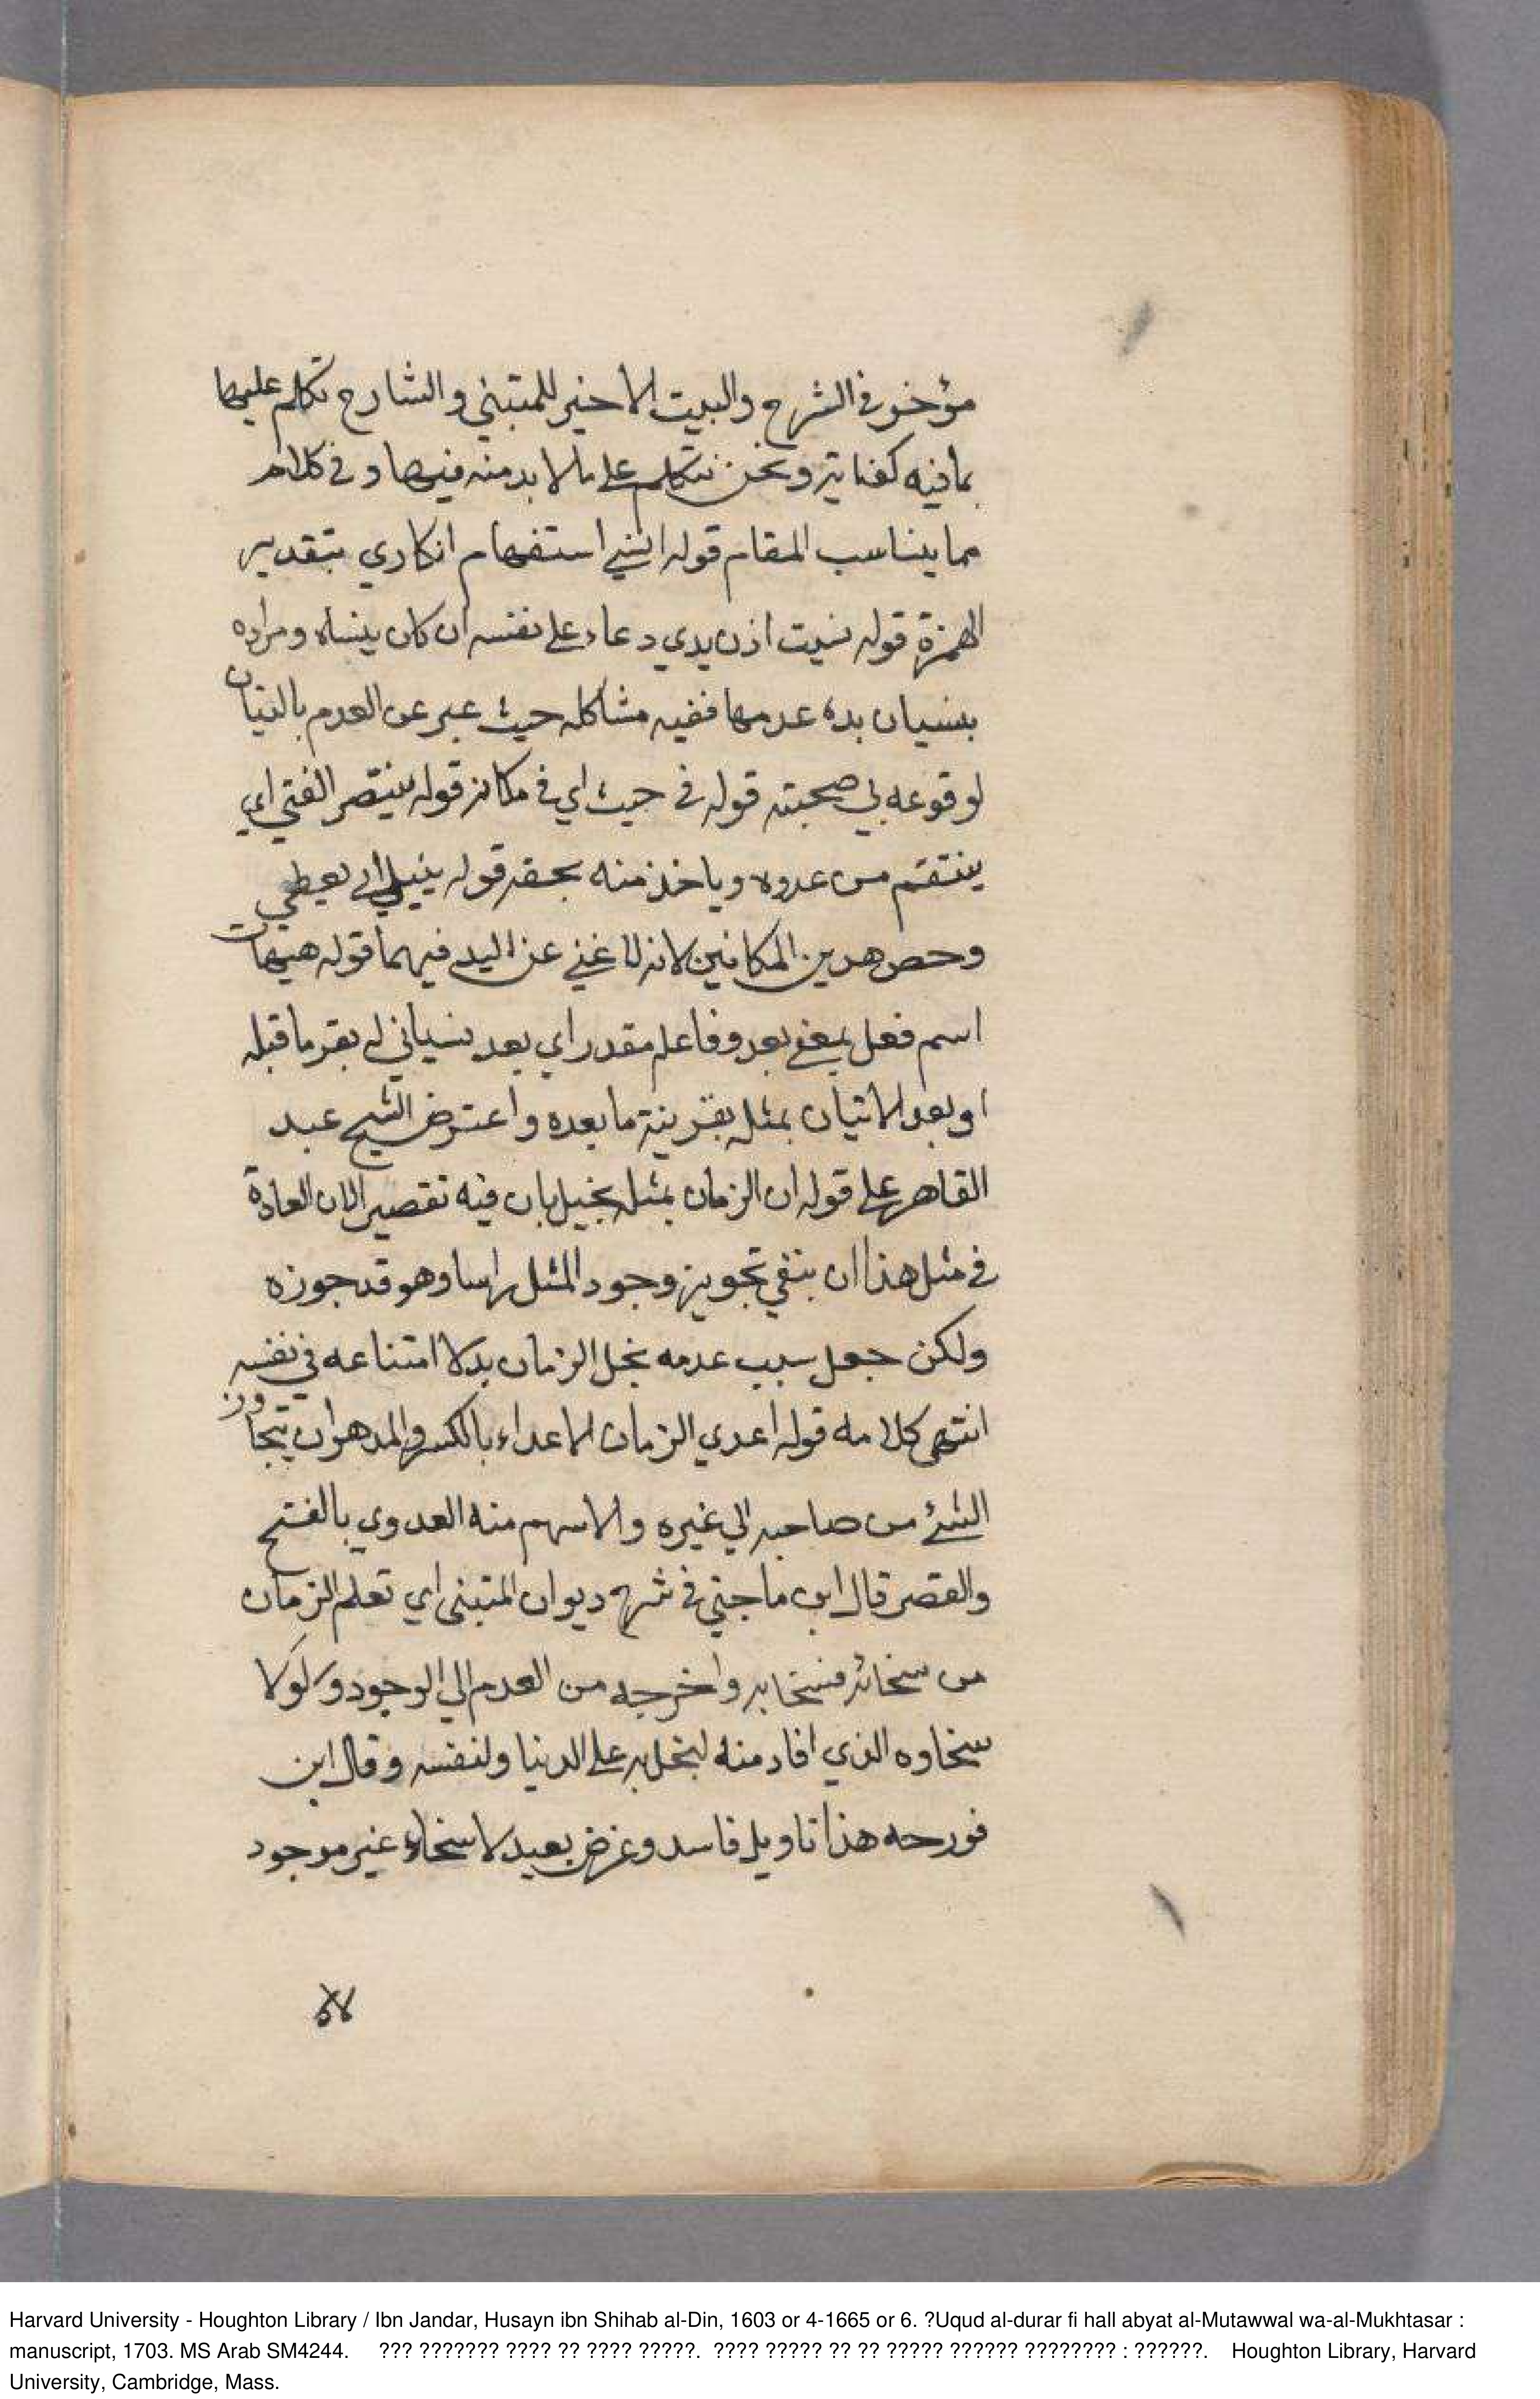 مؤخر في الشرح والبيت الاخير للمتنبي والشارح تكلم عليها
بما فيه كفاية ونحن نتكلم على ما لا بد منه فيها و في كلام
مما يناسب المقام قوله انسي استفهام انكاري بتقدير
الهمزة قوله نسيت اذن يدي دعاء على نفسه ان كان ينساه ومراده
بنسيان يده عدمها ففيه مشاكله حيث عبر عن العدم بالنسيان
لوقوعه في صحبته قوله في حيث اي في مكان قوله ينتصر الفتى اي
ينتقم من عدوه وياخذ منه بحقه قوله ينيل اي يعطي
وخص هذين المكانين لانه لا غني عن اليد فيهما قوله هيهات
اسم فعل بمعني بعد وفاعله مقدر اي بعد نسياني له بقر ما قبله
او بعد الاتيان بمثله بقرينة ما بعده واعترض الشيخ عبد
القاهر على قوله ان الزمان بمثله بخيل بان فيه تقصير الان العادة
في مثل هذا ان ينفي تجويز وجود المثل راسا وهو قد جوزه
ولكن جعل سبب عدمه بخل الزمان بدلا امتناعه في نفسه
انتهى كلامه قوله اعدي الزمان الاعداء بالكسر والمد هو ان يتجاوز
الشئ من صاحبه الي غيره والاسم منه العدوي بالفتح
والقصر قال ابن ماجني في شرح ديوان المتنبى اي تعلم الزمان
من سخائه فسخا به واخرجه من العدم الي الوجود ولولا
سخاوه الذي افاد منه لبخل به على الدنيا ولنفسه وقال ابن
فورحه هذا تاويل فاسد وغرض بعيد لا سخاء غير موجود
Harvard University - Houghton Library / Ibn Jandar, Husayn ibn Shihab al-Din, 1603 or 4-1665 or 6. ?Uqud al-durar fi hall abyat al-Mutawwal wa-al-Mukhtasar :
manuscript, 1703. MS Arab SM4244. ??? ??????? ???? ?? ???? ?????. ???? ????? ?? ?? ????? ?????? ???????? : ??????. Houghton Library, Harvard
University, Cambridge, Mass.